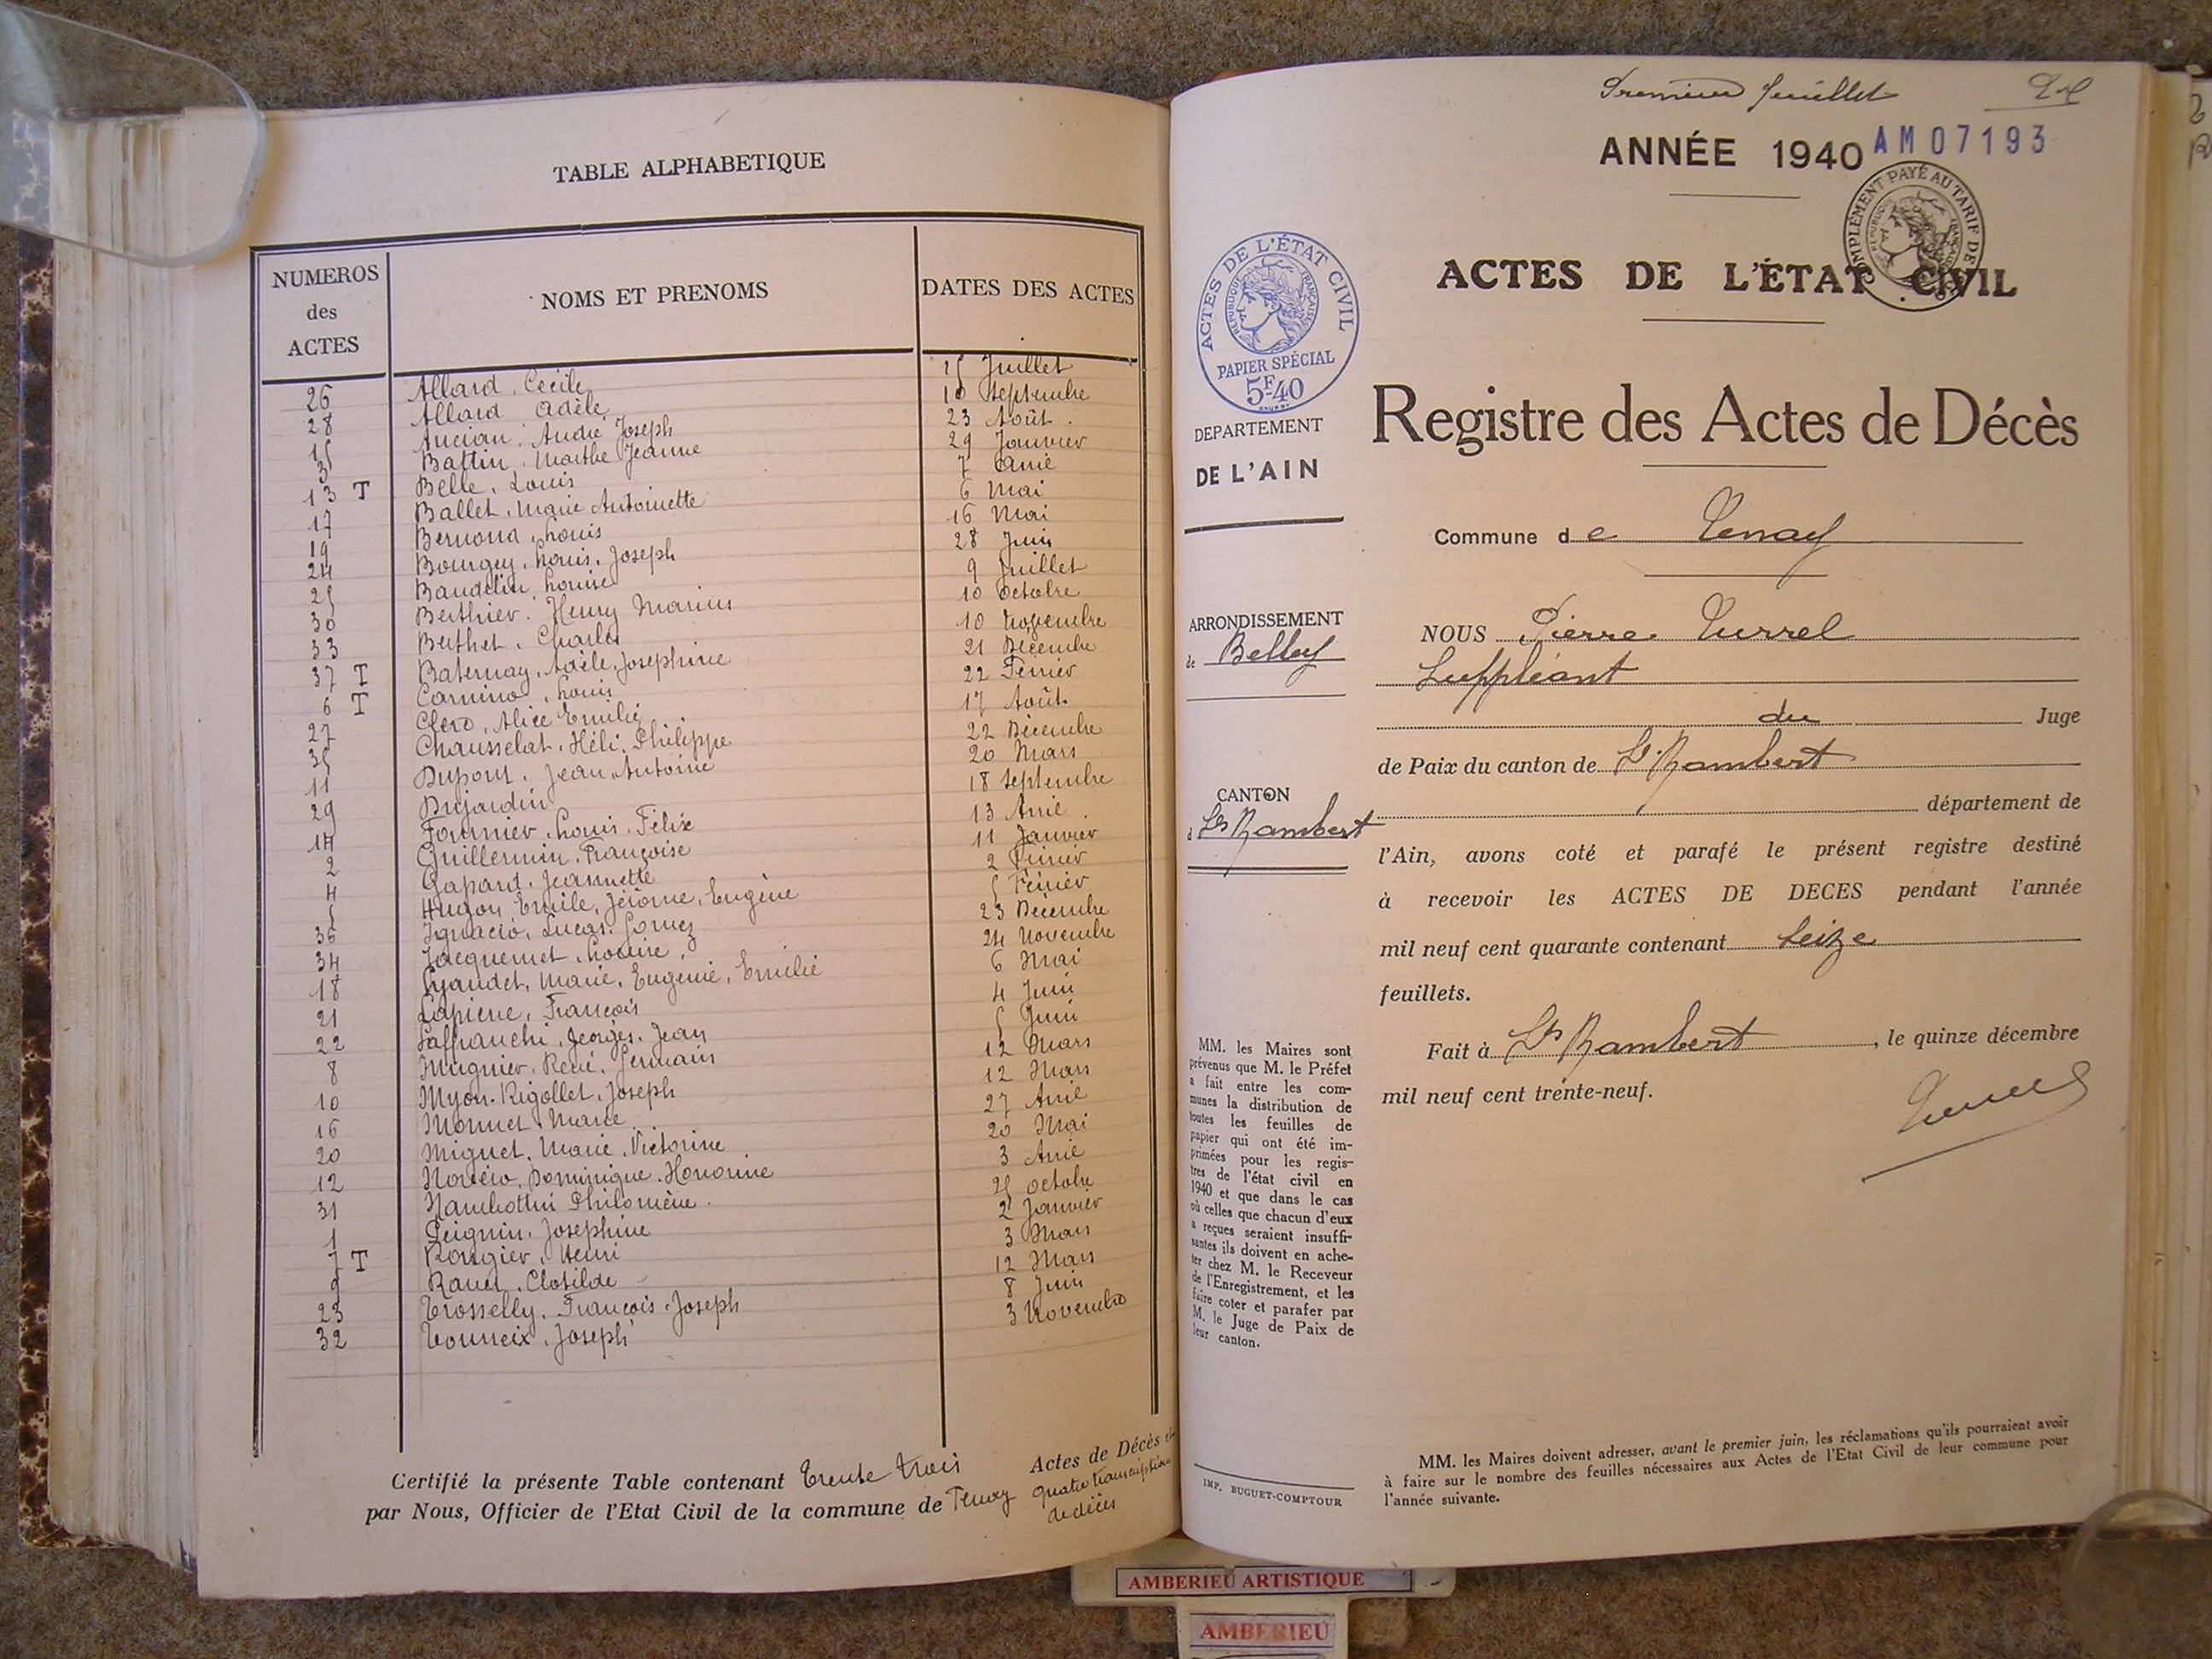 TABLE ALPHABETIQUE
NUMEROS des ACTES
NOMS ET PRENOMS
DATES DES ACTES
26 Allard, Cecile 25 Juillet
28 Allard Adèle 10 Septembre
15 Ancian, André Joseph 23 Août
3 Battin, Marthe Jeanne 29 Janvier
13 T Belle, Louis 7 Avril
17 Ballet, Marie Antoinette 6 Mai
19 Bernond, Louis 16 Mai
24 Bourgey, Louis, Joseph 28 Juin
25 Baudelin, Louise 9 Juillet
30 Berthier, Henry Marius 10 Octobre
33 Berthet, Charles 10 Novembre
37 T Baternay, Adèle, Josephine 21 Décembre
6 T Camino, Louis 22 Février
27 Clerc, Alice Emilie 17 Août
35 Chausselat, Héli, Philippe 22 Décembre
11 Dupont, Jean Antoine 20 Mars
29 Dujardin 18 Septembre
14 Fournier, Louis, Félix 13 Avril
2 Guillermin, Françoise 11 Janvier
4 Gapard, Jeannette 2 Février
5 Hugon, Emile, Jérôme, Eugène 5 Février
36 Ignacio, Lucas, Gomez 23 Décembre
34 Jacquemet, Louise, 24 Novembre
18 Marie, Eugenie, Emilie 6 Mai
21 Lapierre, François 4 Juin
22 Laffranchi, Georges, Jean 5 Juin
8 Mugnier, René, Germain 12 Mars
10 Myon-Rigollet, Joseph 12 Mars
16 Monnet Marie 27 Avril
20 Miguet, Marie, Victorine 20 Mai
12 Dominique, Honorine 3 Avril
31 Philomène 25 Octobre
1 Peignin, Josephine 2 Janvier
7 T Rougier, Henri 3 Mars
9 Clotilde 12 Mars
23 Trosselly, François, Joseph 8 Juin
32 Tourneix, Joseph 3 Novembre
Certifié la présente Table contenant trente trois Actes de Décès et
par Nous, Officier de l'Etat Civil de la commune de Tenay quatre transcriptions
de décès
Premier feuillet
ANNÉE 1940
AM07193
COMPLÉMENT PAYÉ AU TARIF DE
ACTES DE L'ÉTAT CIVIL
ACTES DE L'ÉTAT CIVIL
RÉPUBLIQUE FRANÇAISE
PAPIER SPÉCIAL
5F40
DEPARTEMENT
DE L'AIN
Registre des Actes de Décès
Commune de Tenay
ARRONDISSEMENT
de Belley
CANTON
d St Rambert
NOUS Pierre Turrel
Suppléant
du Juge
de Paix du canton de St Rambert
département de
l'Ain, avons coté et parafé le présent registre destiné
à recevoir les ACTES DE DECES pendant l'année
mil neuf cent quarante contenant seize
feuillets.
Fait à St Rambert, le quinze décembre
mil neuf cent trente-neuf.
MM. les Maires sont
prévenus que M. le Préfet
a fait entre les com-
munes la distribution de
toutes les feuilles de
papier qui ont été im-
primées pour les regis-
tres de l'état civil en
1940 et que dans le cas
où celles que chacun d'eux
a reçues seraient insuffi-
santes ils doivent en ache-
ter chez M. le Receveur
de l'Enregistrement, et les
faire coter et parafer par
M. le Juge de Paix de
leur canton.
IMP. BUGUET-COMPTOUR
MM. les Maires doivent adresser, avant le premier juin, les réclamations qu'ils pourraient avoir
à faire sur le nombre des feuilles nécessaires aux Actes de l'Etat Civil de leur commune pour
l'année suivante.
AMBERIEU ARTISTIQUE
AMBERIEU